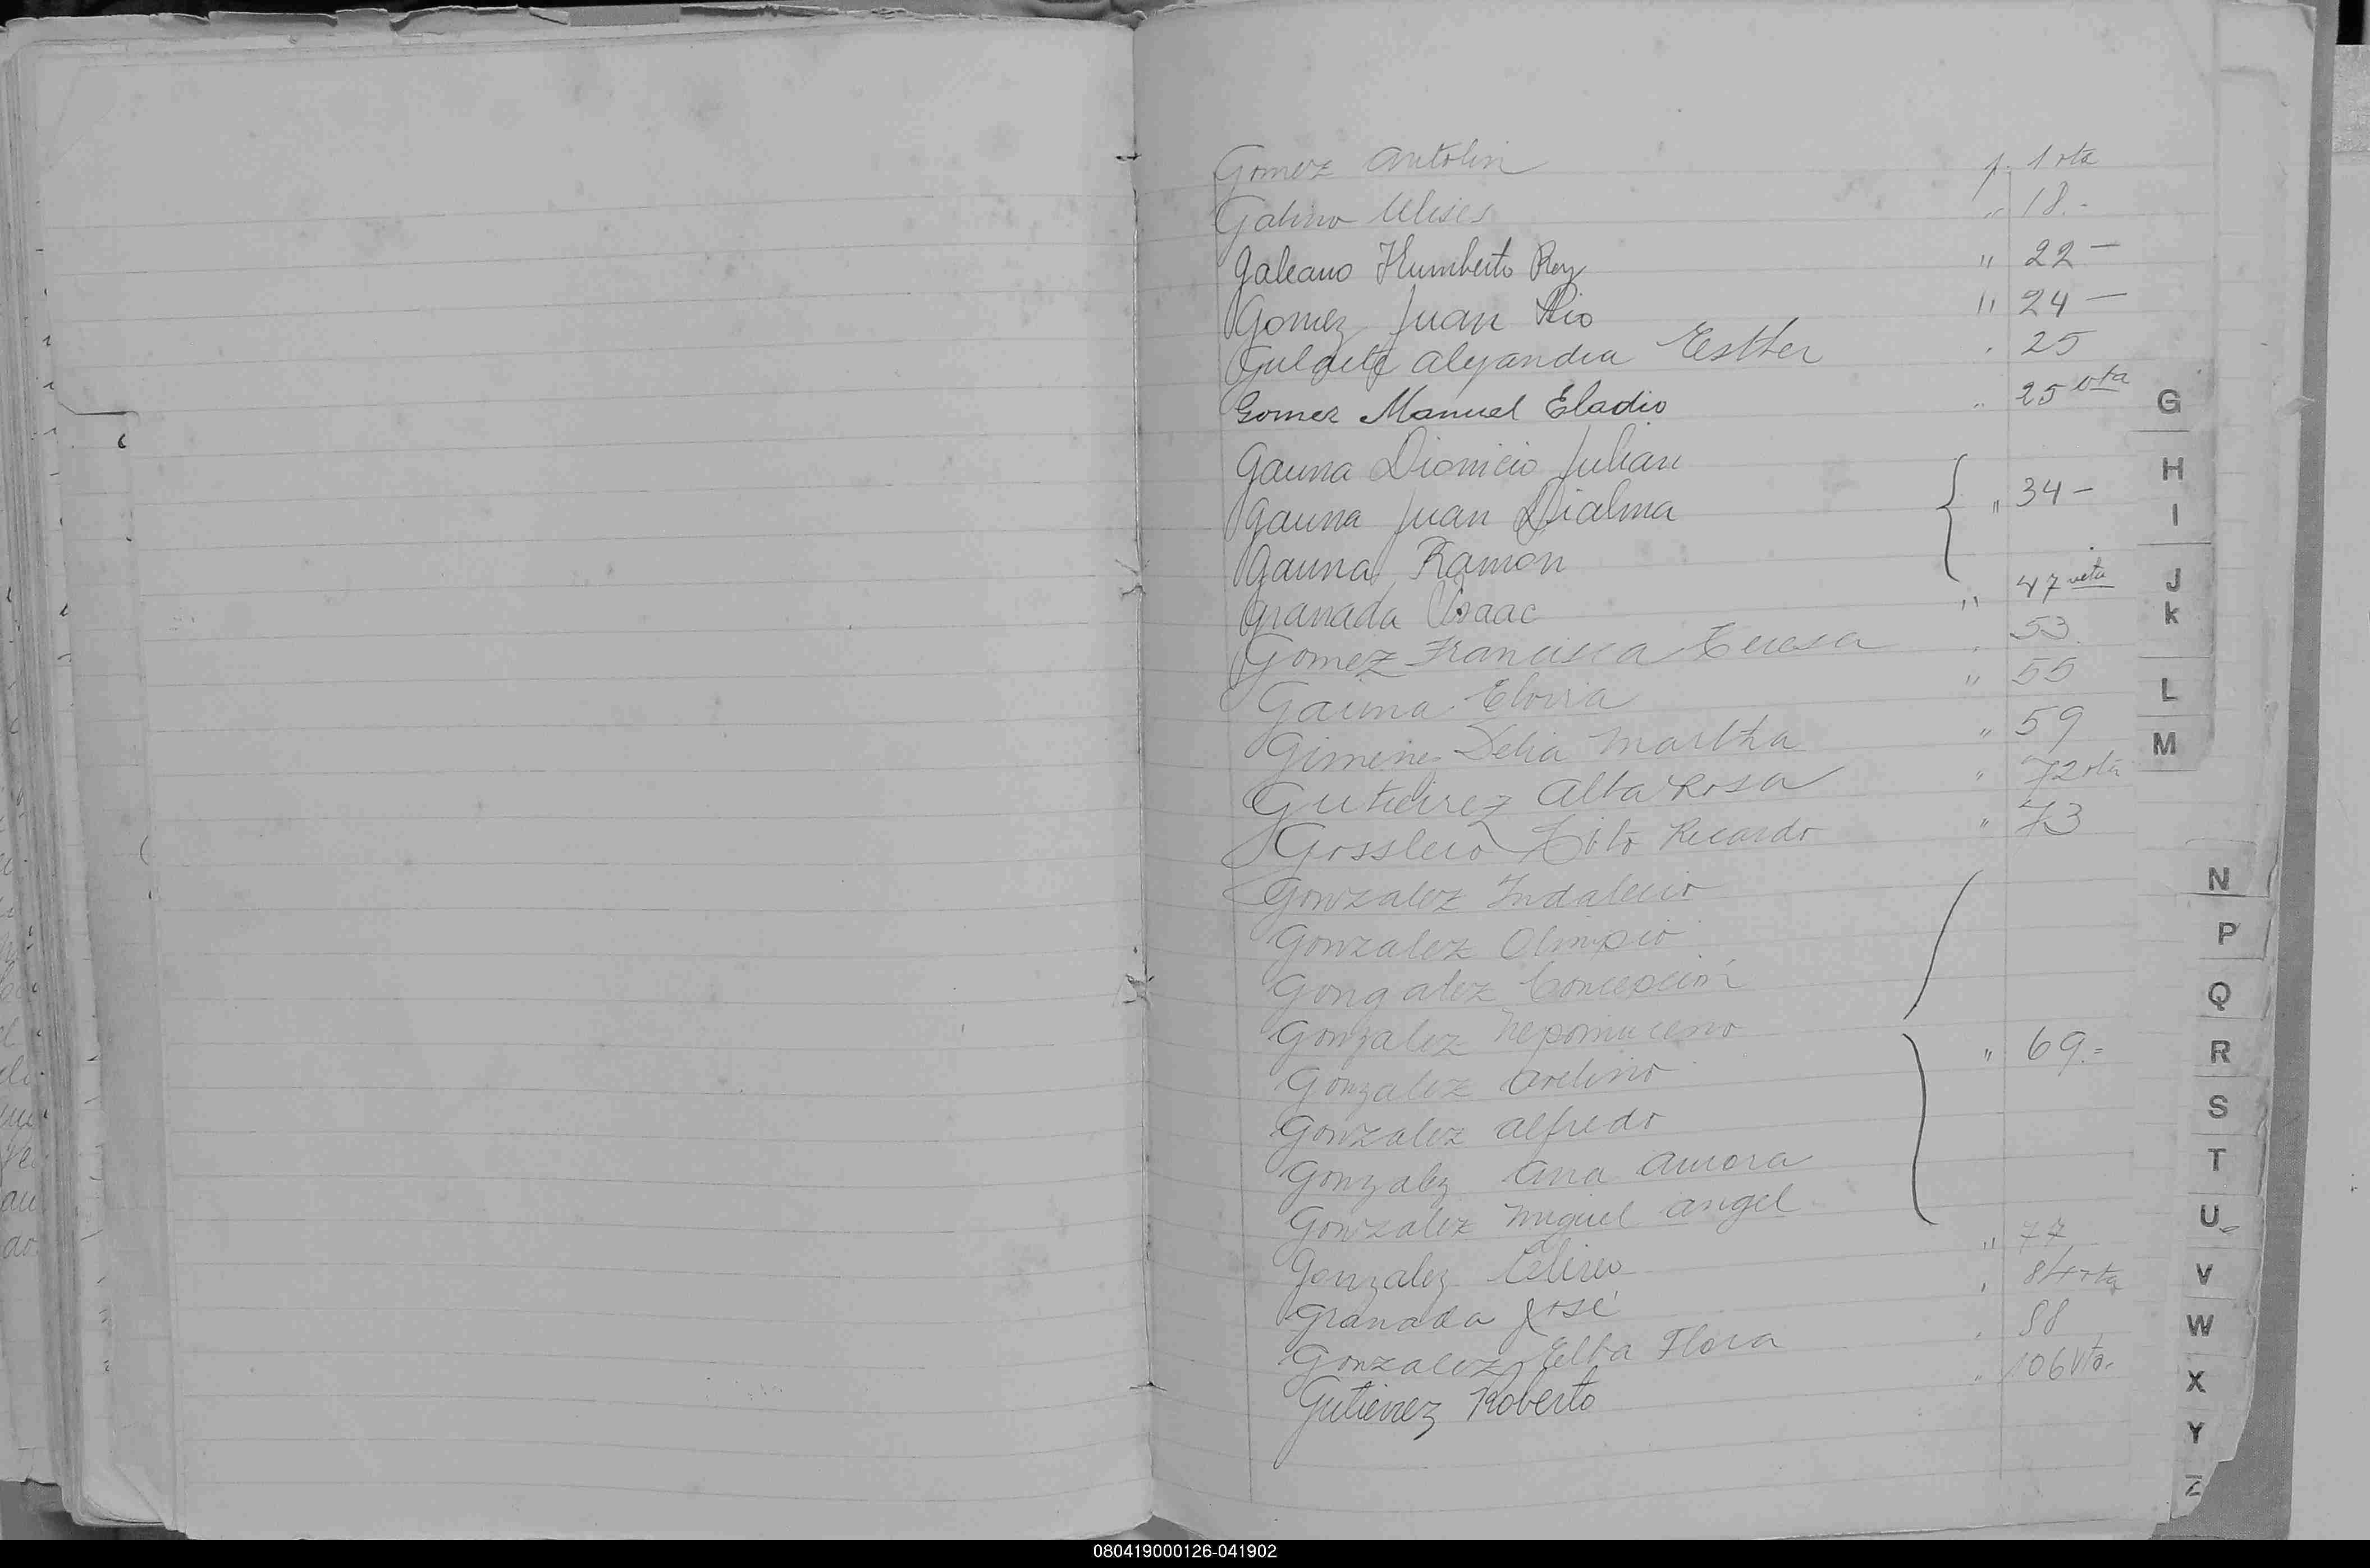 Gomez Antolin p. 1 vta
Galino Ulises " 18.-
Galeano Humberto Rey " 22 —
Gomez Juan Pio " 24 —
Alejandra Esther " 25
Gomez Manuel Eladio " 25 vta
Gauna Dionicio Julian
Gauna Juan Dialma " 34 -
Gauna Ramon
Granada Isaac " 47 vta
Gomez Francisca Teresa " 53
Gauna Elvira " 55
Gimenez Delia Martha " 59
Gutierrez Alba Rosa " 72 vta
Tito Ricardo " 73
Gonzalez Indalecio
Gonzalez Olimpio
Gongalez Concepción
Gonzalez Nepomuceno " 69.=
Gonzalez Avelino
Gonzalez Alfredo
Gonzalez Ana Aurora
Gonzalez Miguel Angel
Gonzalez " 77
Granada José " 84 vta
Gonzalez Elba Flora " 88
Gutierrez Roberto " 106 vta.
G
H
I
J
K
L
M
N
P
Q
R
S
T
U
V
W
X
Y
Z
080419000126-041902